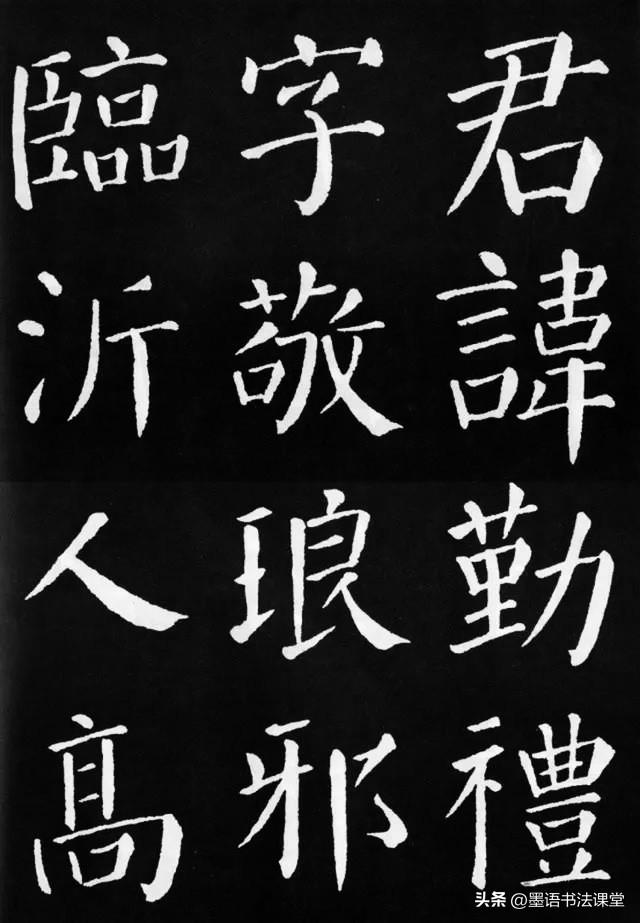 君諱勤禮
字敬琅邪
臨沂人高
头条 @墨语书法课堂